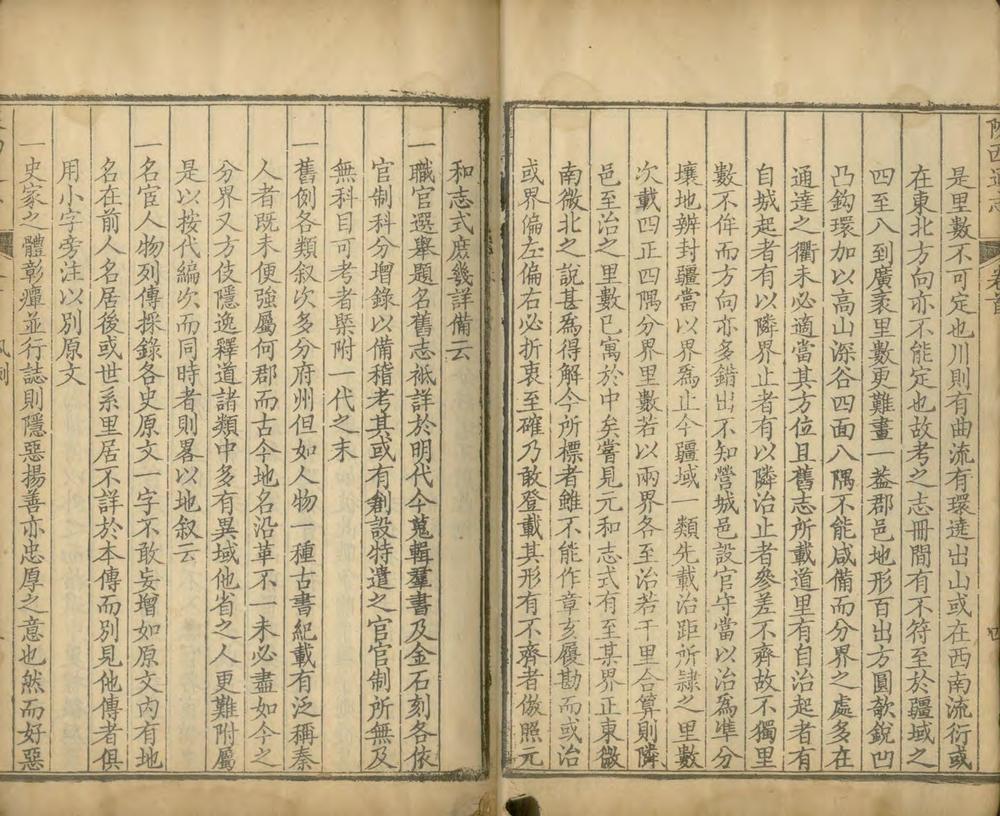 陝西通志 卷首 四
是里數不可定也川則有曲流有環遶出山或在西南流衍或
在東北方向亦不能定也故考之志冊間有不符至於疆域之
四至八到廣袤里數更難畫一蓋郡邑地形百出方圓欹銳凹
凸鈎環加以高山深谷四面八隅不能咸備而分界之處多在
通達之衢未必適當其方位且舊志所載道里有自治起者有
自城起者有以隣界止者有以隣治止者參差不齊故不獨里
數不侔而方向亦多錯出不知營城邑設官守當以治爲準分
壤地辨封疆當以界爲止今疆域一類先載治距所隸之里數
次載四正四隅分界里數若以兩界各至治若干里合算則隣
邑至治之里數已寓於中矣嘗見元和志式有至某界正東微
南微北之說甚爲得解今所標者雖不能作章亥履勘而或治
或界偏左偏右必折衷至確乃敢登載其形有不齊者倣照元
和志式庶幾詳備云
一職官選舉題名舊志衹詳於明代今蒐輯羣書及金石刻各依
官制科分增錄以備稽考其或有創設特遣之官官制所無及
無科目可考者槩附一代之末
一舊例各類叙次多分府州但如人物一種古書紀載有泛稱秦
人者既未便強屬何郡而古今地名沿革不一未必盡如今之
分界又方伎隱逸釋道諸類中多有異域他省之人更難附屬
是以按代編次而同時者則畧以地叙云
一名宦人物列傳採錄各史原文一字不敢妄增如原文內有地
名在前人名居後或世系里居不詳於本傳而別見他傳者俱
用小字旁注以別原文
一史家之體彰癉並行誌則隱惡揚善亦忠厚之意也然而好惡